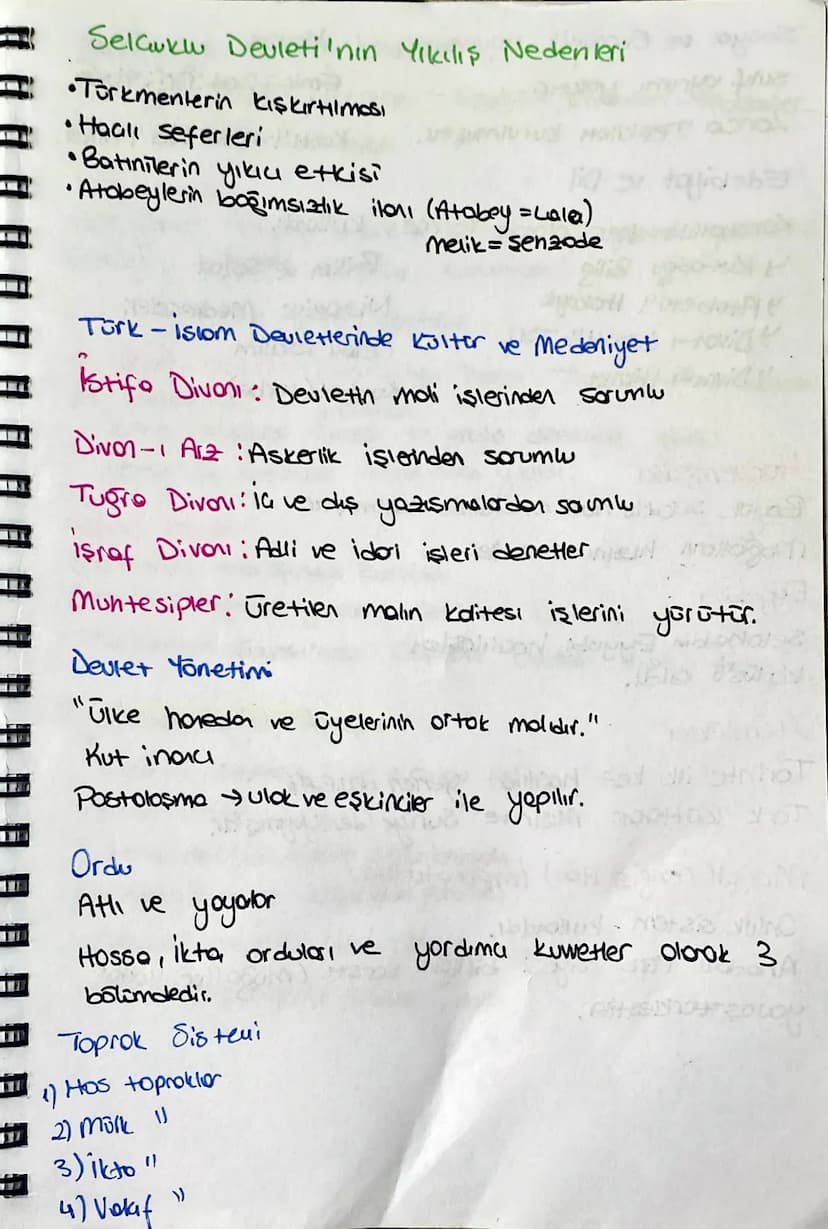 Selçuklu Devleti'nin Yıkılış Nedenleri
• Türkmenlerin kışkırtılması
• Haçlı seferleri
• Batınilerin yıkıcı etkisi
• Atabeylerin bağımsızlık ilanı (Atabey = Lala)
Melik = Şehzade
Türk - İslam Devletlerinde Kültür ve Medeniyet
İstifa Divanı : Devletin mali işlerinden sorumlu
Divan-ı Arz : Askerlik işlerinden sorumlu
Tuğra Divanı : İç ve dış yazışmalardan sorumlu
İşraf Divanı : Adli ve idari işleri denetler
Muhtesipler : Üretilen malın kalitesi işlerini yürütür.
Devlet Yönetimi
"Ülke hanedan ve üyelerinin ortak malıdır."
Kut inancı
Postalaşma → ulak ve eşkinciler ile yapılır.
Ordu
Atlı ve yayalar
Hassa, İkta, orduları ve yardımcı kuvvetler olarak 3
bölümdedir.
Toprak Sistemi
1) Has topraklar
2) Mülk "
3) İkta "
4) Vakıf "